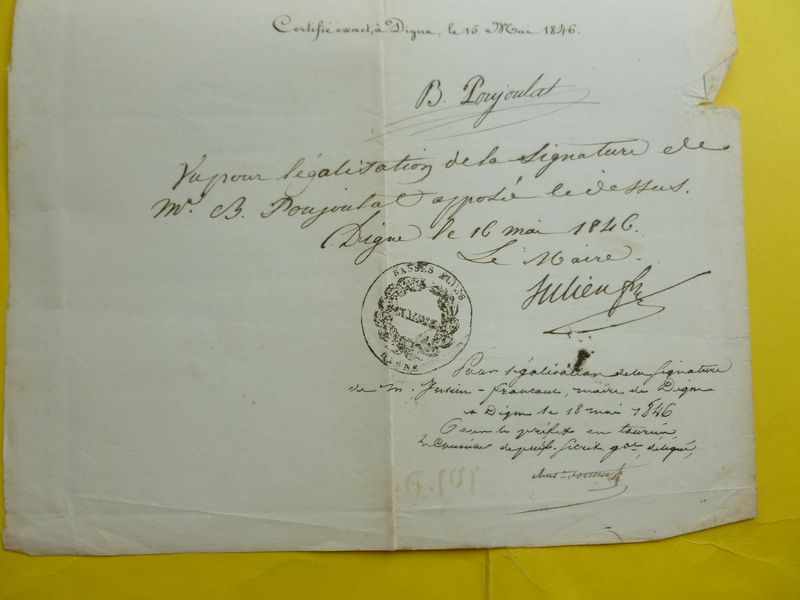 Certifié exact, à Digne, le 15 Mai 1846.
B. Poujoulat
Vu pour légalisation de la signature de
Mr. B. Poujoulat apposé ci dessus.
Digne le 16 mai 1846.
Le Maire.
Julien fr
BASSES ALPES
MAIRIE
DIGNE
Pour légalisation de la signature
de M. Julien-francoul, maire de Digne
à Digne le 18 mai 1846
Pour le préfet en tournée
Le Conseiller de préf. Secrét. gal. délégué,